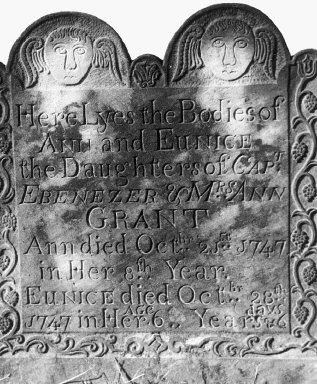 Here Lyes the Bodies of
ANN and EUNICE
the Daughters of CAPt
EBENEZER & Mrs ANN
GRANT
Ann died Octbr 21st 1747
in Her 8th Year.
EUNICE died Octbr 28th
1747 in Her 6 Year
AGE days